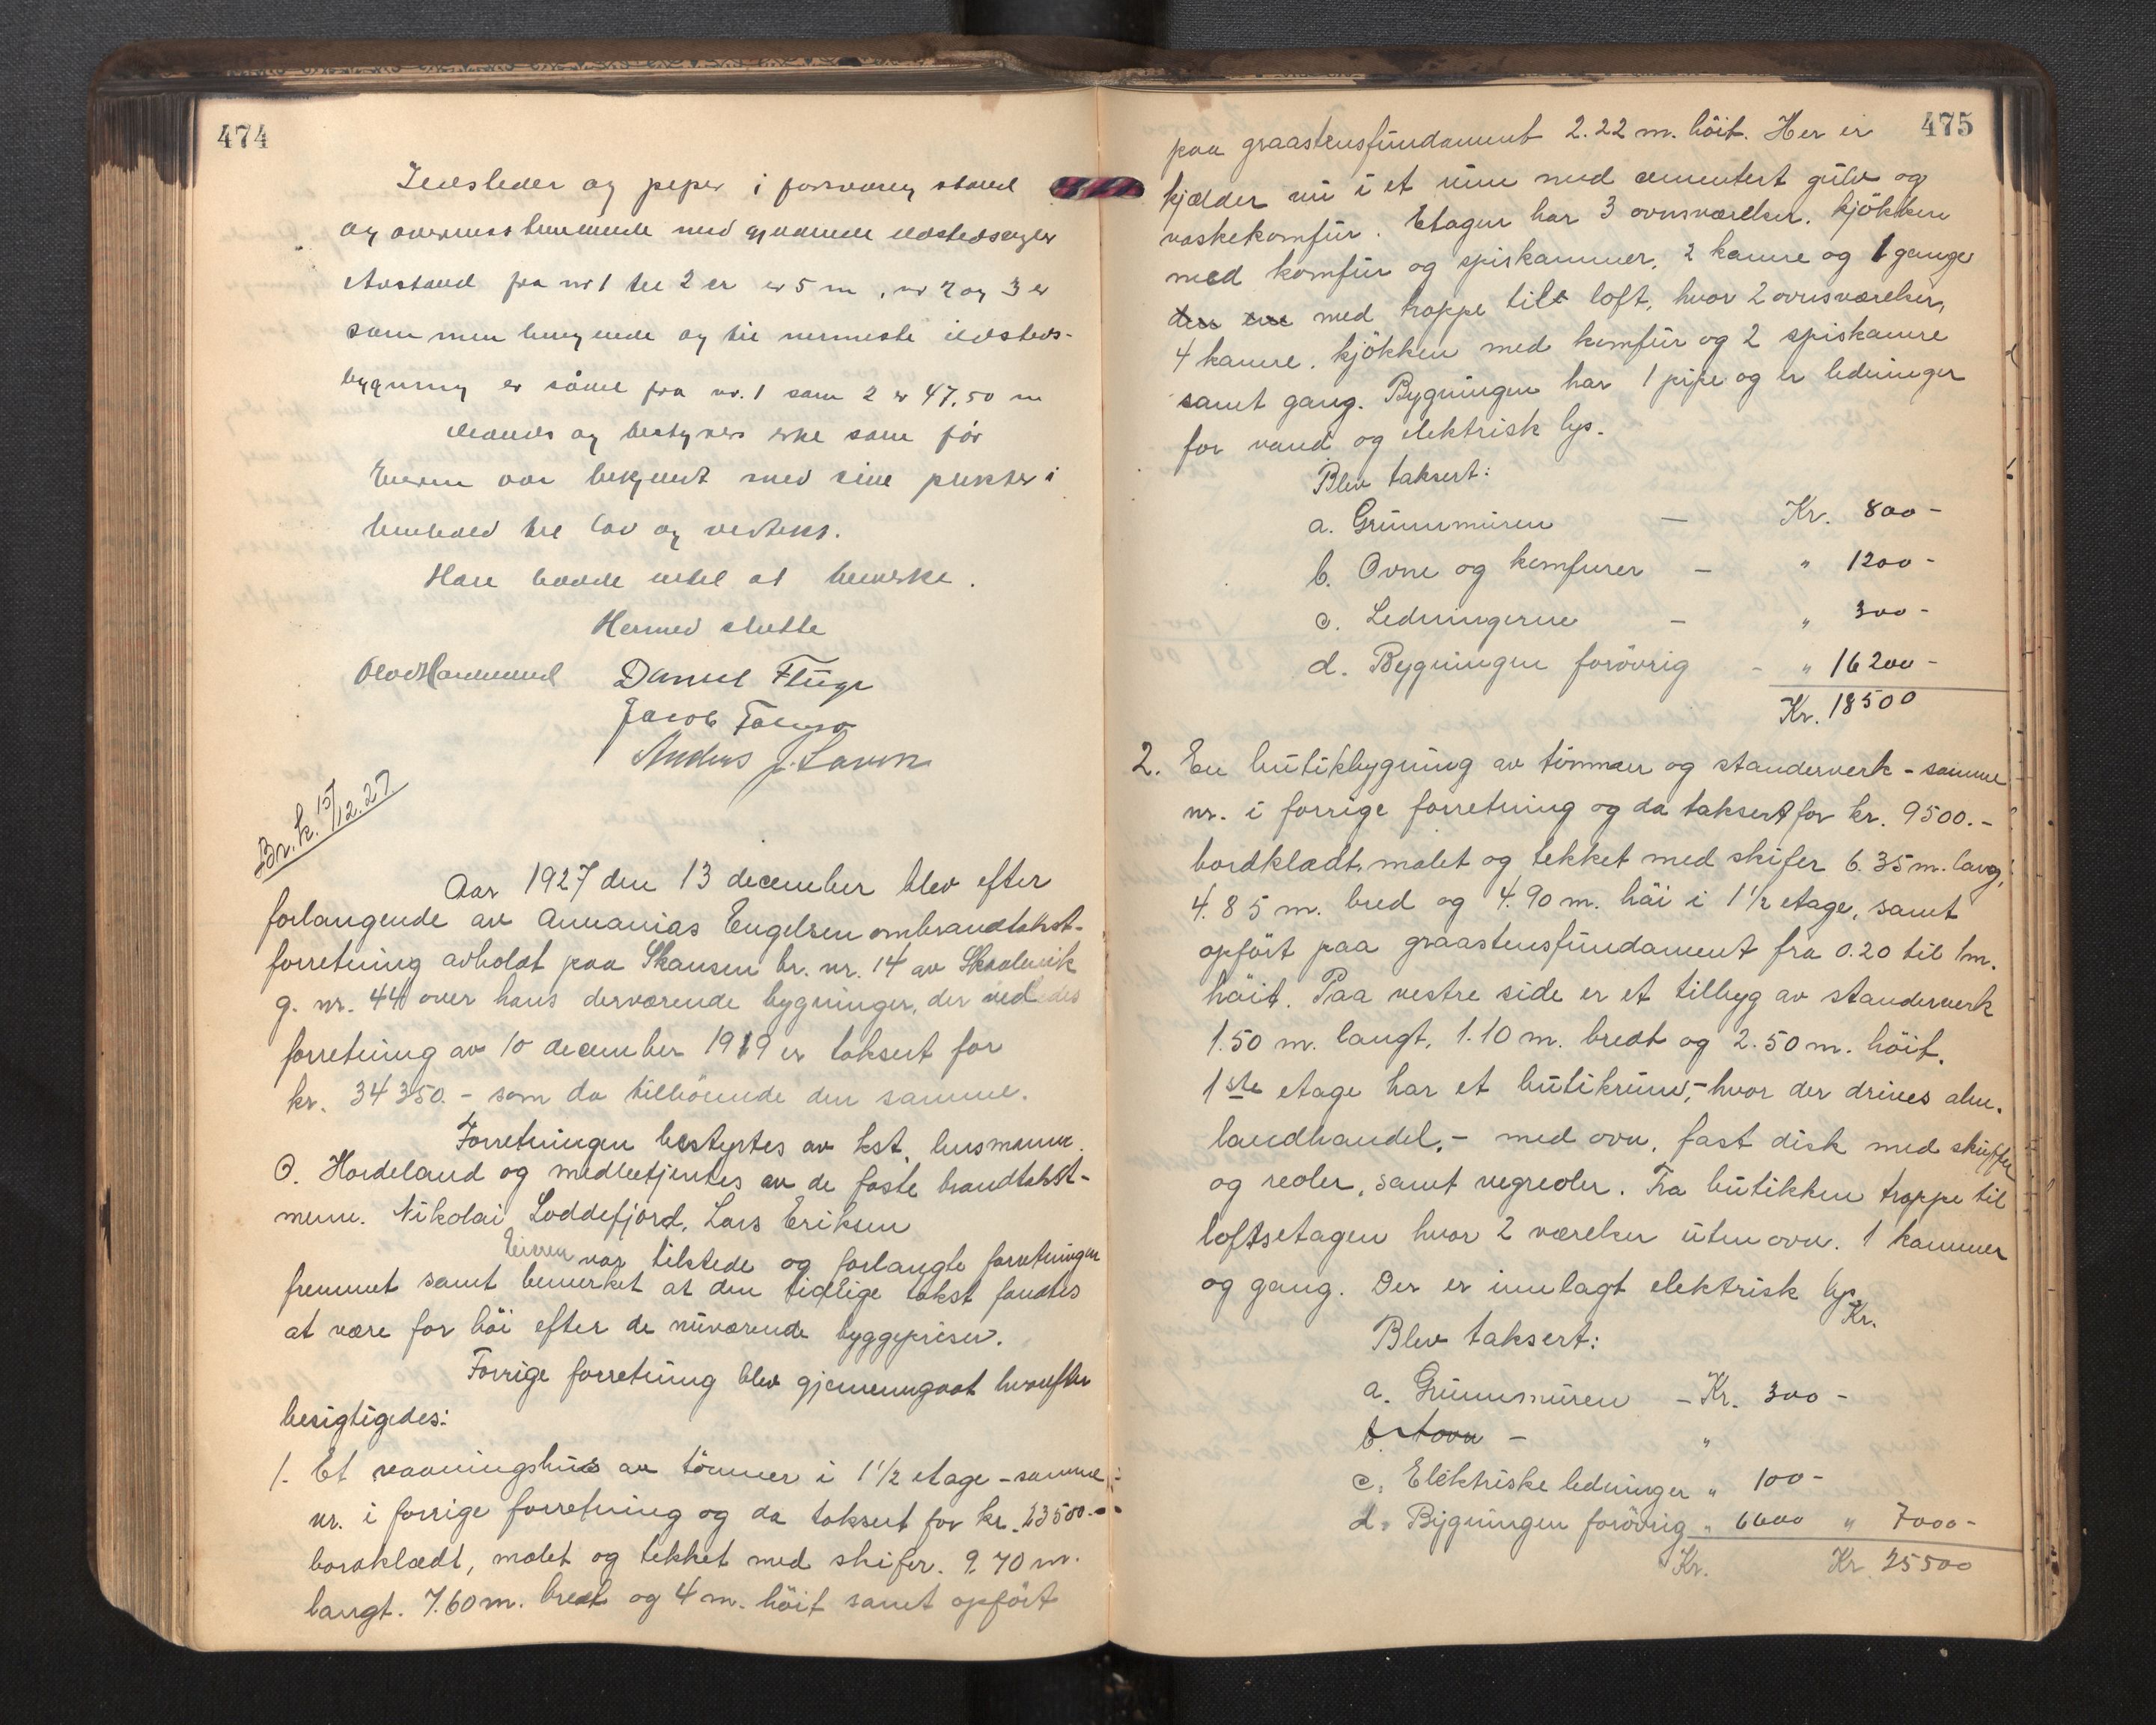 474
Ildsteder og piper i forsvarlig stand
og overensstemmende med gjældende ildstedsregler
Avstand fra nr 1 til 2 er 5 m, nr 2 og 3 er
sammenhengende og til nermeste ildsteds-
bygning er såvel fra nr. 1 som 2 er 47,50 m
og bestyrer som før
Eieren var bekjent med sine plikter i
henhold til lov og vedtekt.
Han havde intet at bemerke.
Hermed slutte
Daniel Fluge
Jacob
Anders J.
Br.k. 15/12.27
Aar 1927 den 13 december blev efter
forlangende av Annanias Engelsen ombrandtakst-
forretning avholdt paa Skansen br. nr. 14 av
g. nr. 44 over hans derværende bygninger, der ved
forretning av 10 december 1919 er taksert for
kr. 34350.- som da tilhörende den samme.
Forretningen bestyrtes av kst. lensmann
O. Hordeland og medbetjentes av de faste brandtakst-
menn. Nikolai Loddefjord, Lars Eriksen
Eieren var tilstede og forlangte forretningen
fremmet samt bemerket at den tidlige takst fandtes
at være for höi efter de nuværende byggepriser.
Forrige forretning blev gjennemgaat hvorefter
besigtigedes:
1. Et vaaningshus av tömmer i 1 1/2 etage - samme
nr. i forrige forretning og da taksert for kr. 23500.-
bordklædt, malet og tekket med skifer. 9.70 m.
langt. 7.60 m. bredt og 4 m. höit samt opfört
475
paa graastensfundament 2.22 m. höit. Her er
kjelder nu i et rum med cementert gulv og
vaskekomfur. Etagen har 3 ovnsværelser. kjökken
med komfur og spiskammer, 2 kamre og 1 gange
den ene med trappe til loft, hvor 2 ovnsværelser,
4 kamre. kjökken med komfur og 2 spiskamre
samt gang. Bygningen har 1 pipe og er ledninger
for vand og elektrisk lys.
Blev taksert:
a. Grunnmuren — Kr. 800-
b. Ovne og komfurer - " 1200-
c. Ledningerne - " 300-
d. Bygningen forövrig - " 16200-
Kr. 18500
2. En butikbygning av tömmer og standerverk - samme
nr. i forrige forretning og da taksert for kr. 9500.-
bordklædt, malet og tekket med skifer 6.35 m. lang,
4.85 m. bred og 4.90 m. höi i 1 1/2 etage, samt
opfört paa graastensfundament fra 0.20 til 1 m.
höit. Paa vestre side er et tilbyg av standerverk
1.50 m. langt, 1.10 m. bredt og 2.50 m. höit.
1ste etage har et butikrum, - hvor der drives alm.
landhandel, - med ovn, fast disk med skuffer
og reoler, samt vegreoler. Fra butikken trappe til
loftsetagen hvor 2 værelser uten ovn. 1 kammer
og gang. Der er innlagt elektrisk lys.
Kr.
Blev taksert:
a. Grunnmuren - Kr. 300-
b. 1 ovn - "
c. Elektriske ledninger " 100-
d. Bygningen forövrig " 6600 " 7000-
Kr. Kr. 25500